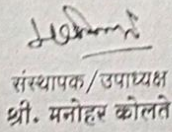 संस्थापक/उपाध्यक्ष
श्री. मनोहर कोलते